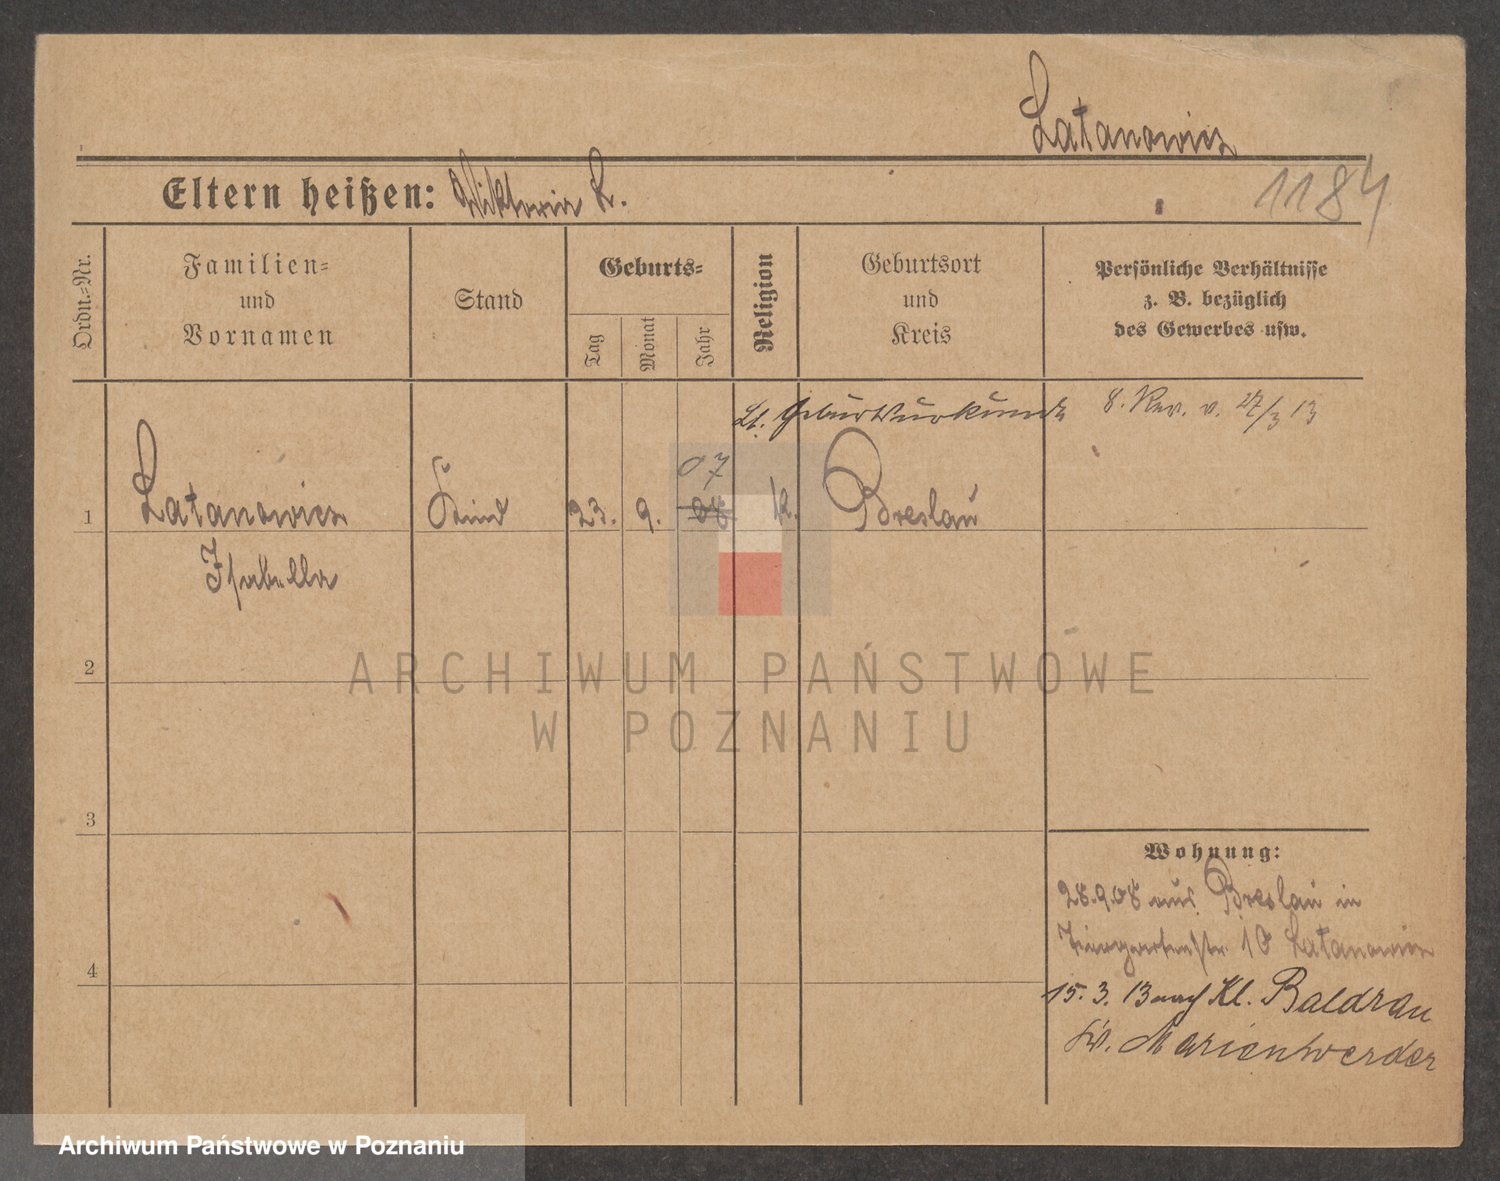 Latanowicz
Eltern heißen: Wiktoria L.
1184
Ordn.-Nr.
Familien-
und
Vornamen
Stand
Geburts-
Tag
Monat
Jahr
Religion
Geburtsort
und
Kreis
Persönliche Verhältnisse
z. B. bezüglich
des Gewerbes usw.
Lt. Geburtsurkunde 8. Rev. v. 27/3 13
07
1 Latanowicz Kind 23. 9. 08 k. Breslau
Isabella
2
ARCHIWUM PAŃSTWOWE
W POZNANIU
3
Wohnung:
28.9.08 aus Breslau in
Tiergartenstr. 10 Latanowicz
4
15. 3. 13 nach Kl. Baldrau
Kr. Marienwerder
Archiwum Państwowe w Poznaniu